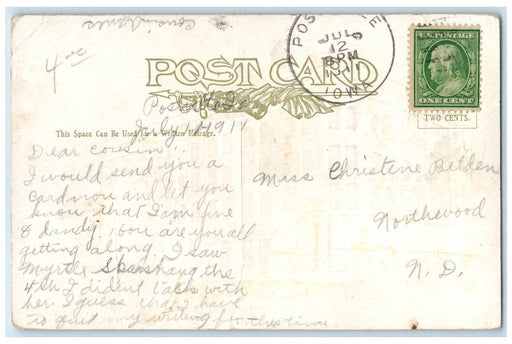 POST CARD
JUL
12
8 PM
1911
IOWA
U.S. POSTAGE
ONE CENT
TWO CENTS.
This Space Can Be Used for a Written Message.
July 1911
Dear cousin.
I would send you a
card now and let you
know that I am fine
& dandy. How are you all
getting along I saw
Myrtle the
4th I dident talk with
her. I guess that I have
to quit my writing for this time.
Miss Christine Belden
Northwood
N. D.